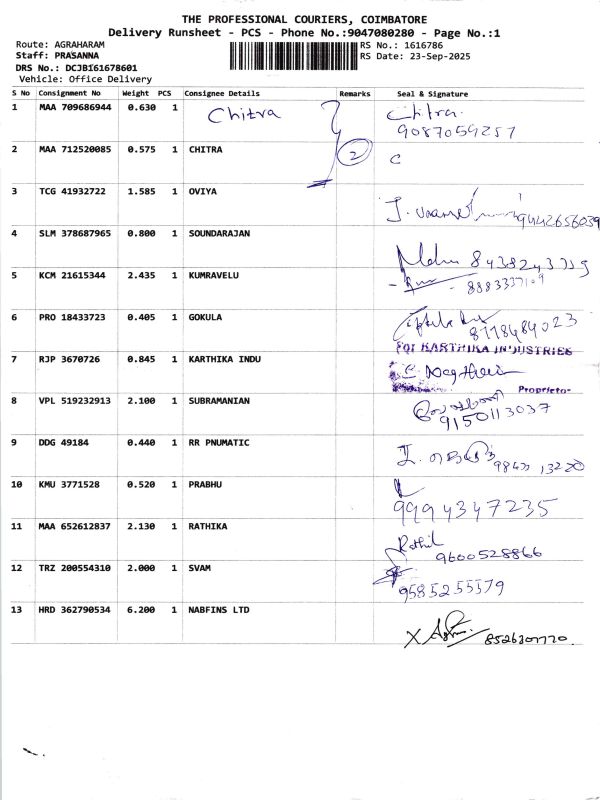 THE PROFESSIONAL COURIERS, COIMBATORE
Delivery Runsheet - PCS - Phone No.:9047080280 - Page No.:1
Route: AGRAHARAM RS No.: 1616786
Staff: PRASANNA RS Date: 23-Sep-2025
DRS No.: DCJB161678601
Vehicle: Office Delivery
S No Consignment No Weight PCS Consignee Details Remarks Seal & Signature
1 MAA 709686944 0.630 1 Chitra Chitra
9087059257
2 MAA 712520085 0.575 1 CHITRA 2 C
3 TCG 41932722 1.585 1 OVIYA
9442656039
4 SLM 378687965 0.800 1 SOUNDARAJAN
5 KCM 21615344 2.435 1 KUMRAVELU
6 PRO 18433723 0.405 1 GOKULA
8778484023
For KARTHIKA INDUSTRIES
7 RJP 3670726 0.845 1 KARTHIKA INDU
Proprietor
8 VPL 519232913 2.100 1 SUBRAMANIAN
9150113037
9 DDG 49184 0.440 1 RR PNUMATIC
10 KMU 3771528 0.520 1 PRABHU
9994347235
11 MAA 652612837 2.130 1 RATHIKA
Rathi
9600528866
12 TRZ 200554310 2.000 1 SVAM
9585255579
13 HRD 362790534 6.200 1 NABFINS LTD